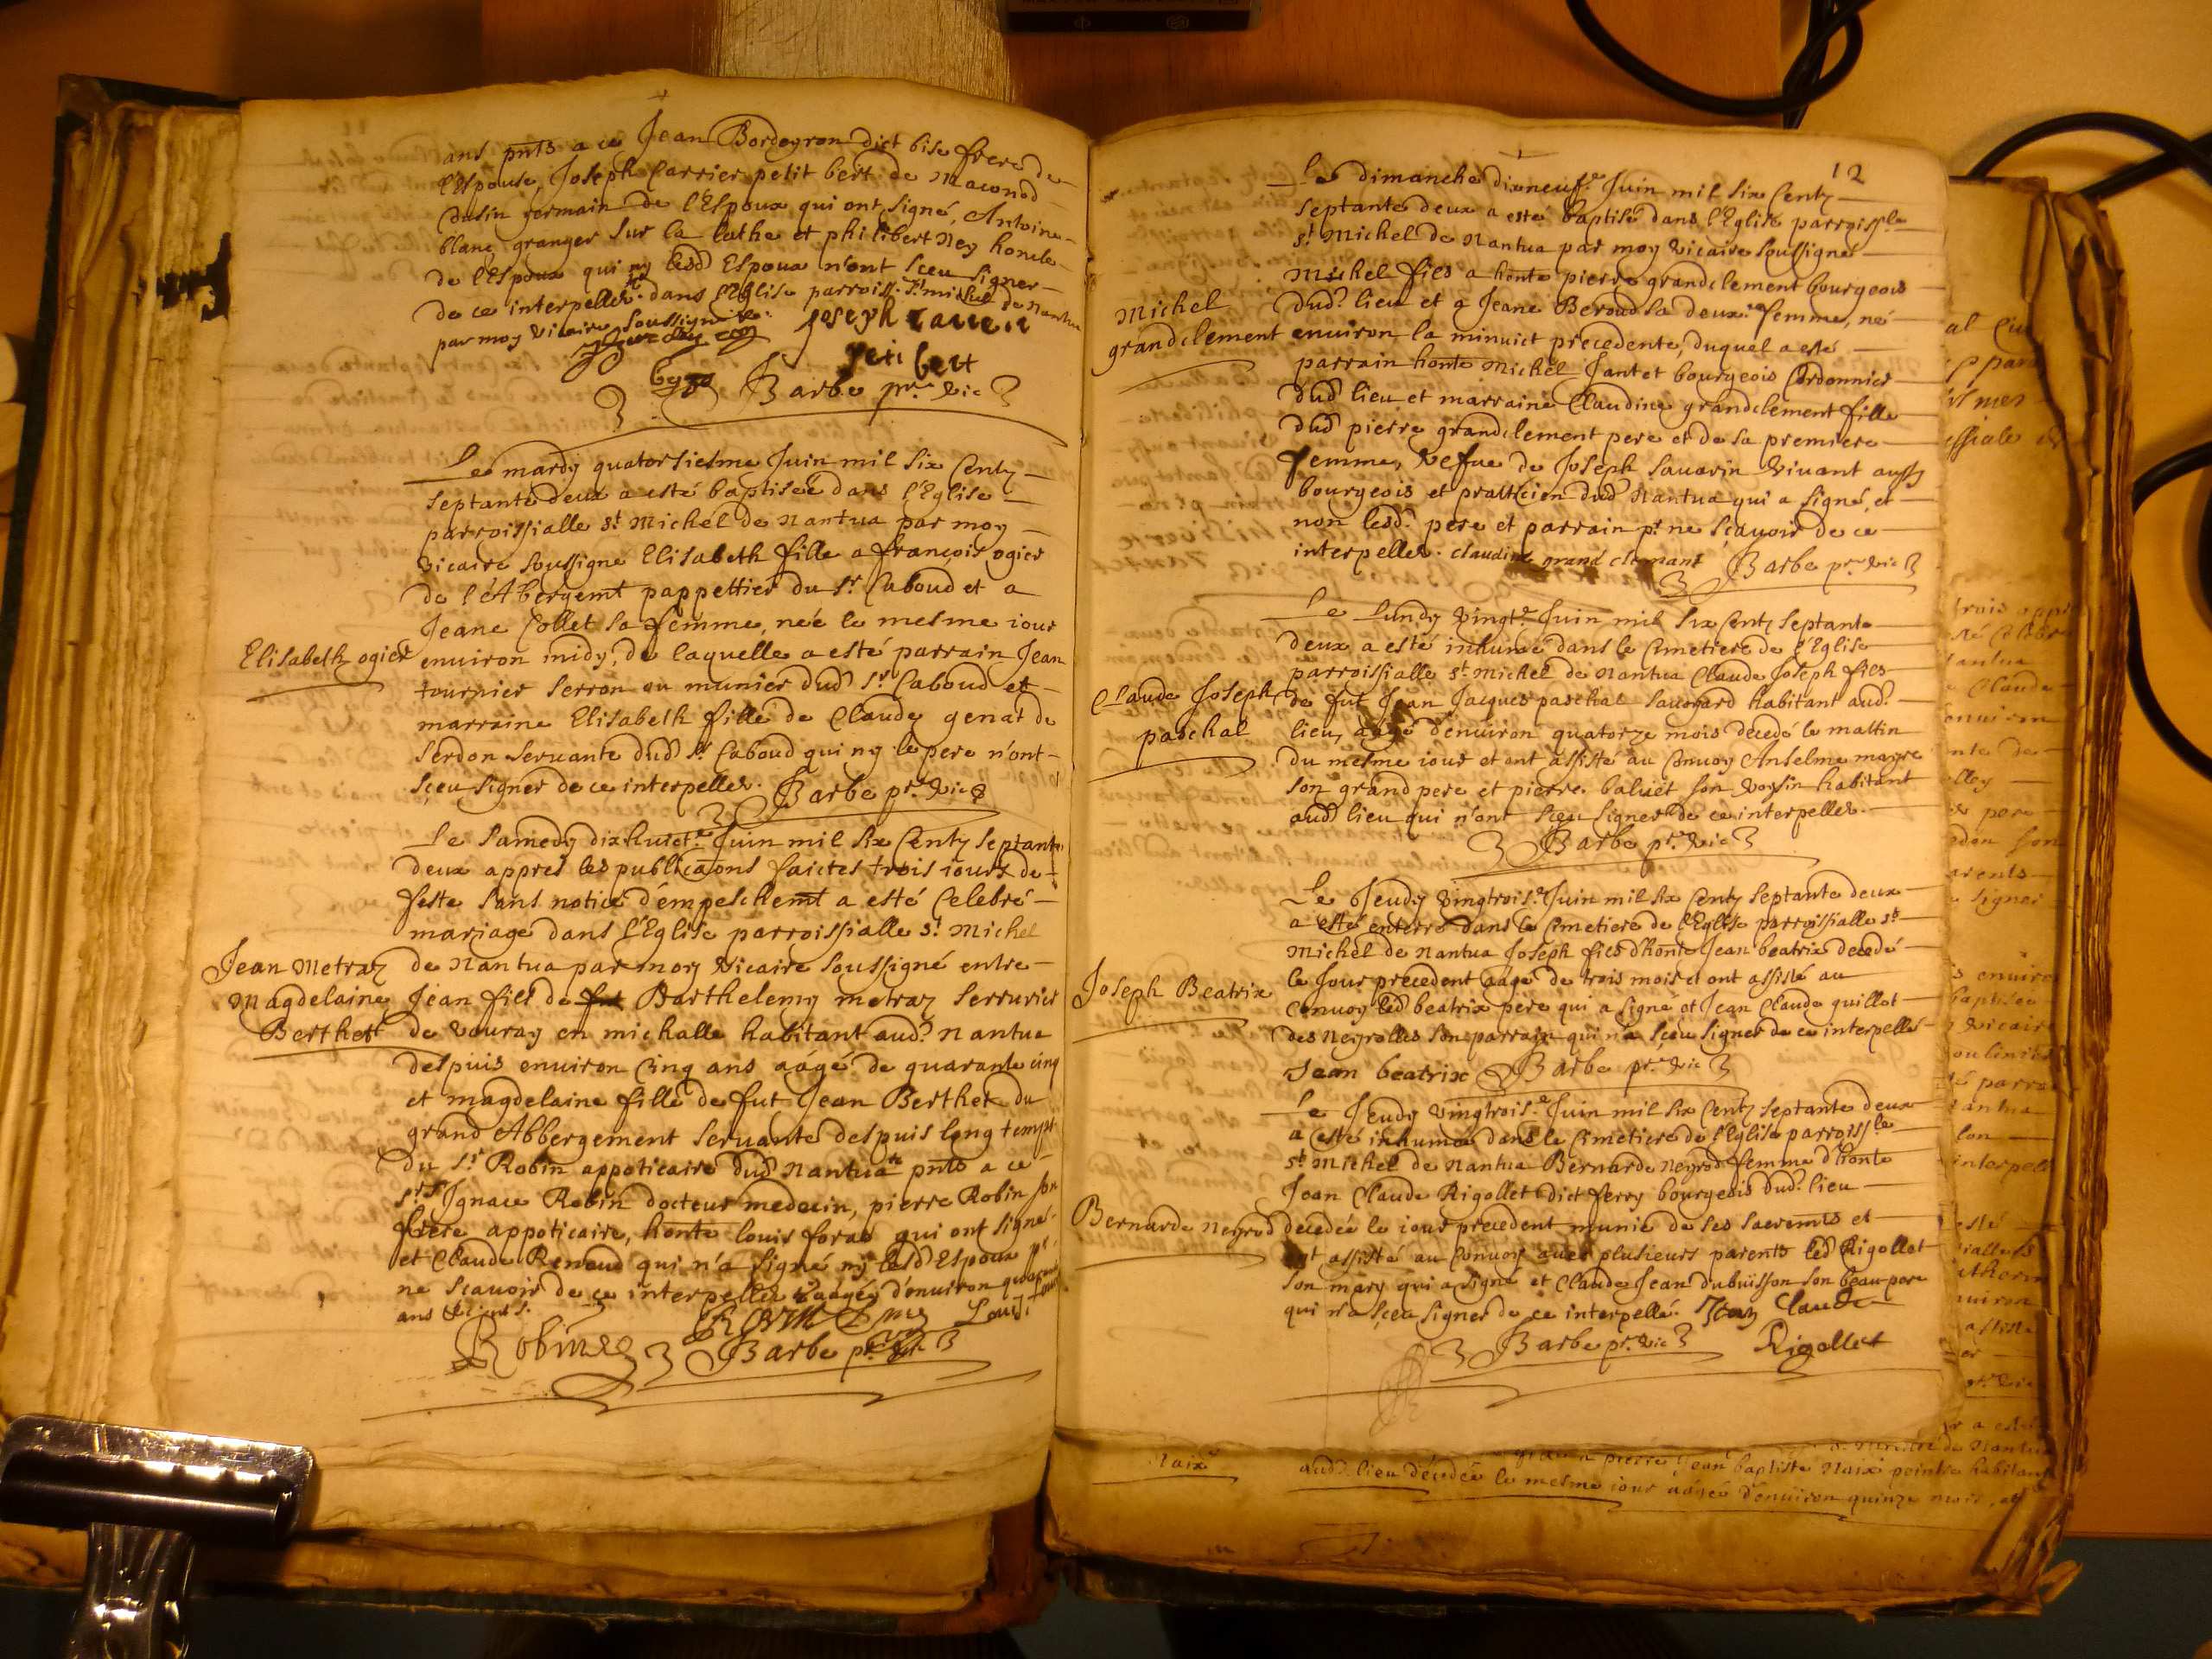 ans pnts a ce Jean Bordeyron dict bise frere de
l'Espouse, Joseph Carrier petit bert de Maconod
Cusin germain de l'Espoux qui ont signé, Antoine
blanc granger sur la lathe et philibert Ney
de l'Espoux qui ny lesd Espoux n'ont sceu signer
de ce interpellés. dans l'Eglise parroiss. St michel de Nantua
par moy vicaire soussigné.
Joseph carrier
peti bert
Barbe pr. vic
Le mardy quatorsiesme Juin mil six Centz
septante deux a esté baptisée dans l'Eglise
parroissialle st Michel de Nantua par moy
vicaire soussigne Elisabeth fille a françois ogier
de l'Abergemt pappettier du sr Caboud et a
Jeane Collet sa femme, née le mesme iour
Elisabeth ogier
enuiron midy, de laquelle a esté parrain Jean
tournier serron ou munier dud sr Caboud et
marraine Elisabeth fille de Claude genat de
serdon seruante dud sr Caboud qui ny le pere n'ont
sçeu signer de ce interpellés. Barbe pr. vic
Le samedy dixhuict.e Juin mil six Centz septante
deux appres les publicaons faictes trois iours de
feste sans notice d'empeschemt a esté Celebré
mariage dans l'Eglise parroissialle st Michel
Jean Metraz
Magdelaine
Berthet
de Nantua par moy vicaire soussigné entre
Jean fils de fut Barthelemy metraz serrurier
de vouray en michalle habitant aud. Nantua
despuis enuiron Cinq ans aagé de quarante cinq
et magdelaine fille de fut Jean Berthet du
grand Abbergement seruante despuis long temps
du sr Robin appoticaire dud Nantua pnts a ce
sr Ignace Robin docteur medecin, pierre Robin son
frere appoticaire, honte louis foras qui ont signé
et Claude Renaud qui n'a signé ny lesd Espoux pr
ne scauoir de ce interpellés aagés d'enuiron
ans
Robin
Barbe pr. vic
12
Le dimanche dixneuf.e Juin mil six Centz
septante deux a esté baptisé dans l'Eglise parroissle
st Michel de Nantua par moy vicaire soussigné
Michel fils a honte pierre grandclement bourgeois
Michel
grandclement
dud. lieu et a Jeane Beroud sa deux.e femme, né
enuiron la minuict precedente, duquel a esté
parrain honte Michel Jantet bourgeois Cordonnier
dud lieu et marraine Claudine grandclement fille
dud pierre grandclement pere et de sa premiere
femme, vefue de Joseph sauarin viuant aussy
bourgeois et pratticien dud Nantua qui a signé, et
non lesd. pere et parrain pr ne sçauoir de ce
interpellés. claudine grand clemant Barbe pr. vic
Le Lundy vingt.e Juin mil six Centz septante
deux a esté inhumé dans le Cimetiere de l'Eglise
parroissialle st Michel de Nantua Claude Joseph fils
Claude Joseph
paschal
de fut Jean Jacques paschal sauoyard habitant aud.
lieu, aagé d'enuiron quatorze mois decedé le mattin
du mesme iour et ont assisté au Conuoy Anselme mayre
son grand pere et pierre baluet son voysin habitant
aud lieu qui n'ont sçeu signer de ce interpellés.
Barbe pr. vic
Le Jeudy vingtrois.e Juin mil six Centz septante deux
a esté enterré dans le Cimetiere de l'Eglise parroissialle st
Michel de Nantua Joseph fils d'honte Jean beatrix decedé
Joseph Beatrix
le Jour precedent aagé de trois mois et ont assisté au
Conuoy led beatrix pere qui a signé et Jean Claude guillot
des Neyrolles son parrain qui n'a sçeu signer de ce interpellé
Jean beatrix Barbe pr. vic
Le Jeudy vingtrois.e Juin mil six Centz septante deux
a esté inhumée dans le Cimetiere de l'Eglise parroissle
st Michel de Nantua Bernarde Neyrod femme d'honte
Jean Claude Rigollet dict ferry bourgeois dud. lieu
Bernarde Neyrod
decedée le iour precedent munie de ses sacremts et
ont assisté au Conuoy auec plusieurs parents led Rigollet
son mary qui a signé et Claude Jean dubuisson son beau pere
qui n'a sçeu signer de ce interpellé. Jean Claude
Barbe pr. vic Rigollet
pierre Jean baptiste Naix peintre habitant
Naix
aud. lieu décedée le mesme iour aagée d'enuiron quinze mois, et